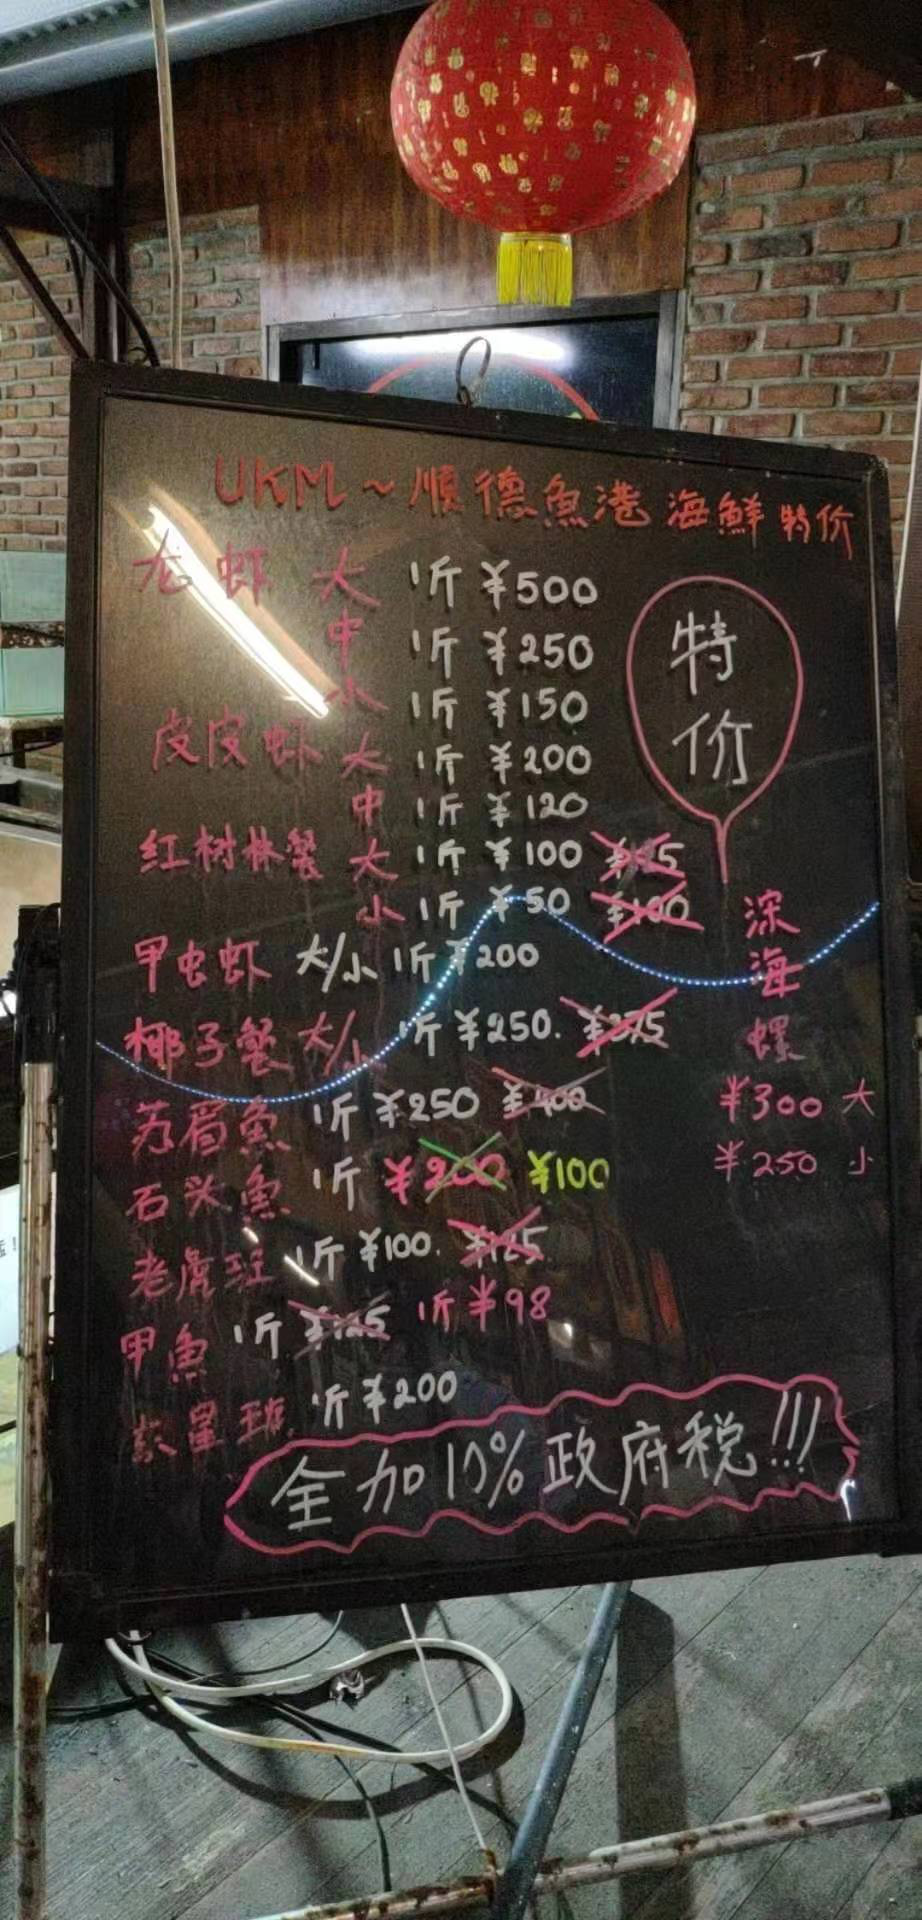 UKM~順德魚港海鮮特价
龙虾 大 1斤 ¥500
中 1斤 ¥250
小 1斤 ¥150
特
价
皮皮虾 大 1斤 ¥200
中 1斤 ¥120
红树林蟹 大 1斤 ¥100
小 1斤 ¥50 ¥100
甲虫虾 大/小 1斤 ¥200
椰子蟹 大/小 1斤 ¥250. ¥375
苏眉魚 1斤 ¥250 ¥400
石头魚 1斤 ¥200 ¥100
老虎班 1斤 ¥100. ¥125
甲魚 1斤 ¥125 1斤 ¥98
星班 1斤 ¥200
深
海
螺
¥300 大
¥250 小
全加10%政府税!!!